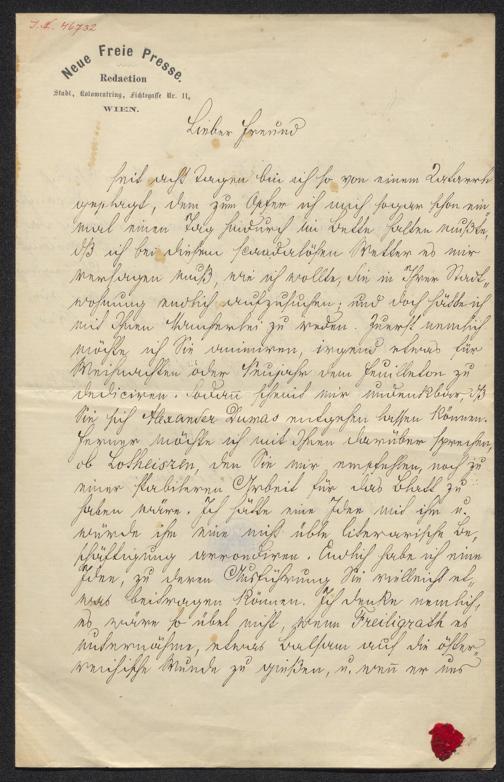 J.N. 46732
Neue Freie Presse.
Redaction
Stadt, Kolowratring, Fichtegasse Nr. 11,
WIEN.
Lieber Freund
seit acht Tagen bin ich so von einem Katarrh
geplagt, dem zum Opfer ich mich sogar schon ein
mal einen Tag hindurch im Bette halten mußte,
dß ich bei diesem scandalösen Wetter es mir
versagen muß wie ich wollte, Sie in Ihrer Stadt-
wohnung endlich aufzusuchen; und doch hätte ich
mit Ihnen Mancherlei zu reden. Zuerst nemlich
möchte ich Sie animiren, irgend etwas für
Weihnachten oder Neujahr dem Feuilleton zu
dediciren. Sodann scheint mir undenkbar, dß
Sie sich Alexander Dumas entgehen lassen können.
Ferner möchte ich mit Ihnen darüber sprechen,
ob Lotheissen, den Sie mir empfehlen, noch zu
einer stabileren Arbeit für das Blatt zu
haben wäre. Ich hätte eine Idee mit ihm u.
würde ihm eine nicht üble literarische Be-
schäftigung arrondiren. Endlich habe ich eine
Idee, zu deren Ausführung Sie vielleicht et-
was beitragen können. Ich denke nemlich,
es wäre so übel nicht, wenn Freiligrath es
unternähme, etwas Balsam auf die öster-
reichische Wunde zu gießen, u. wenn er uns